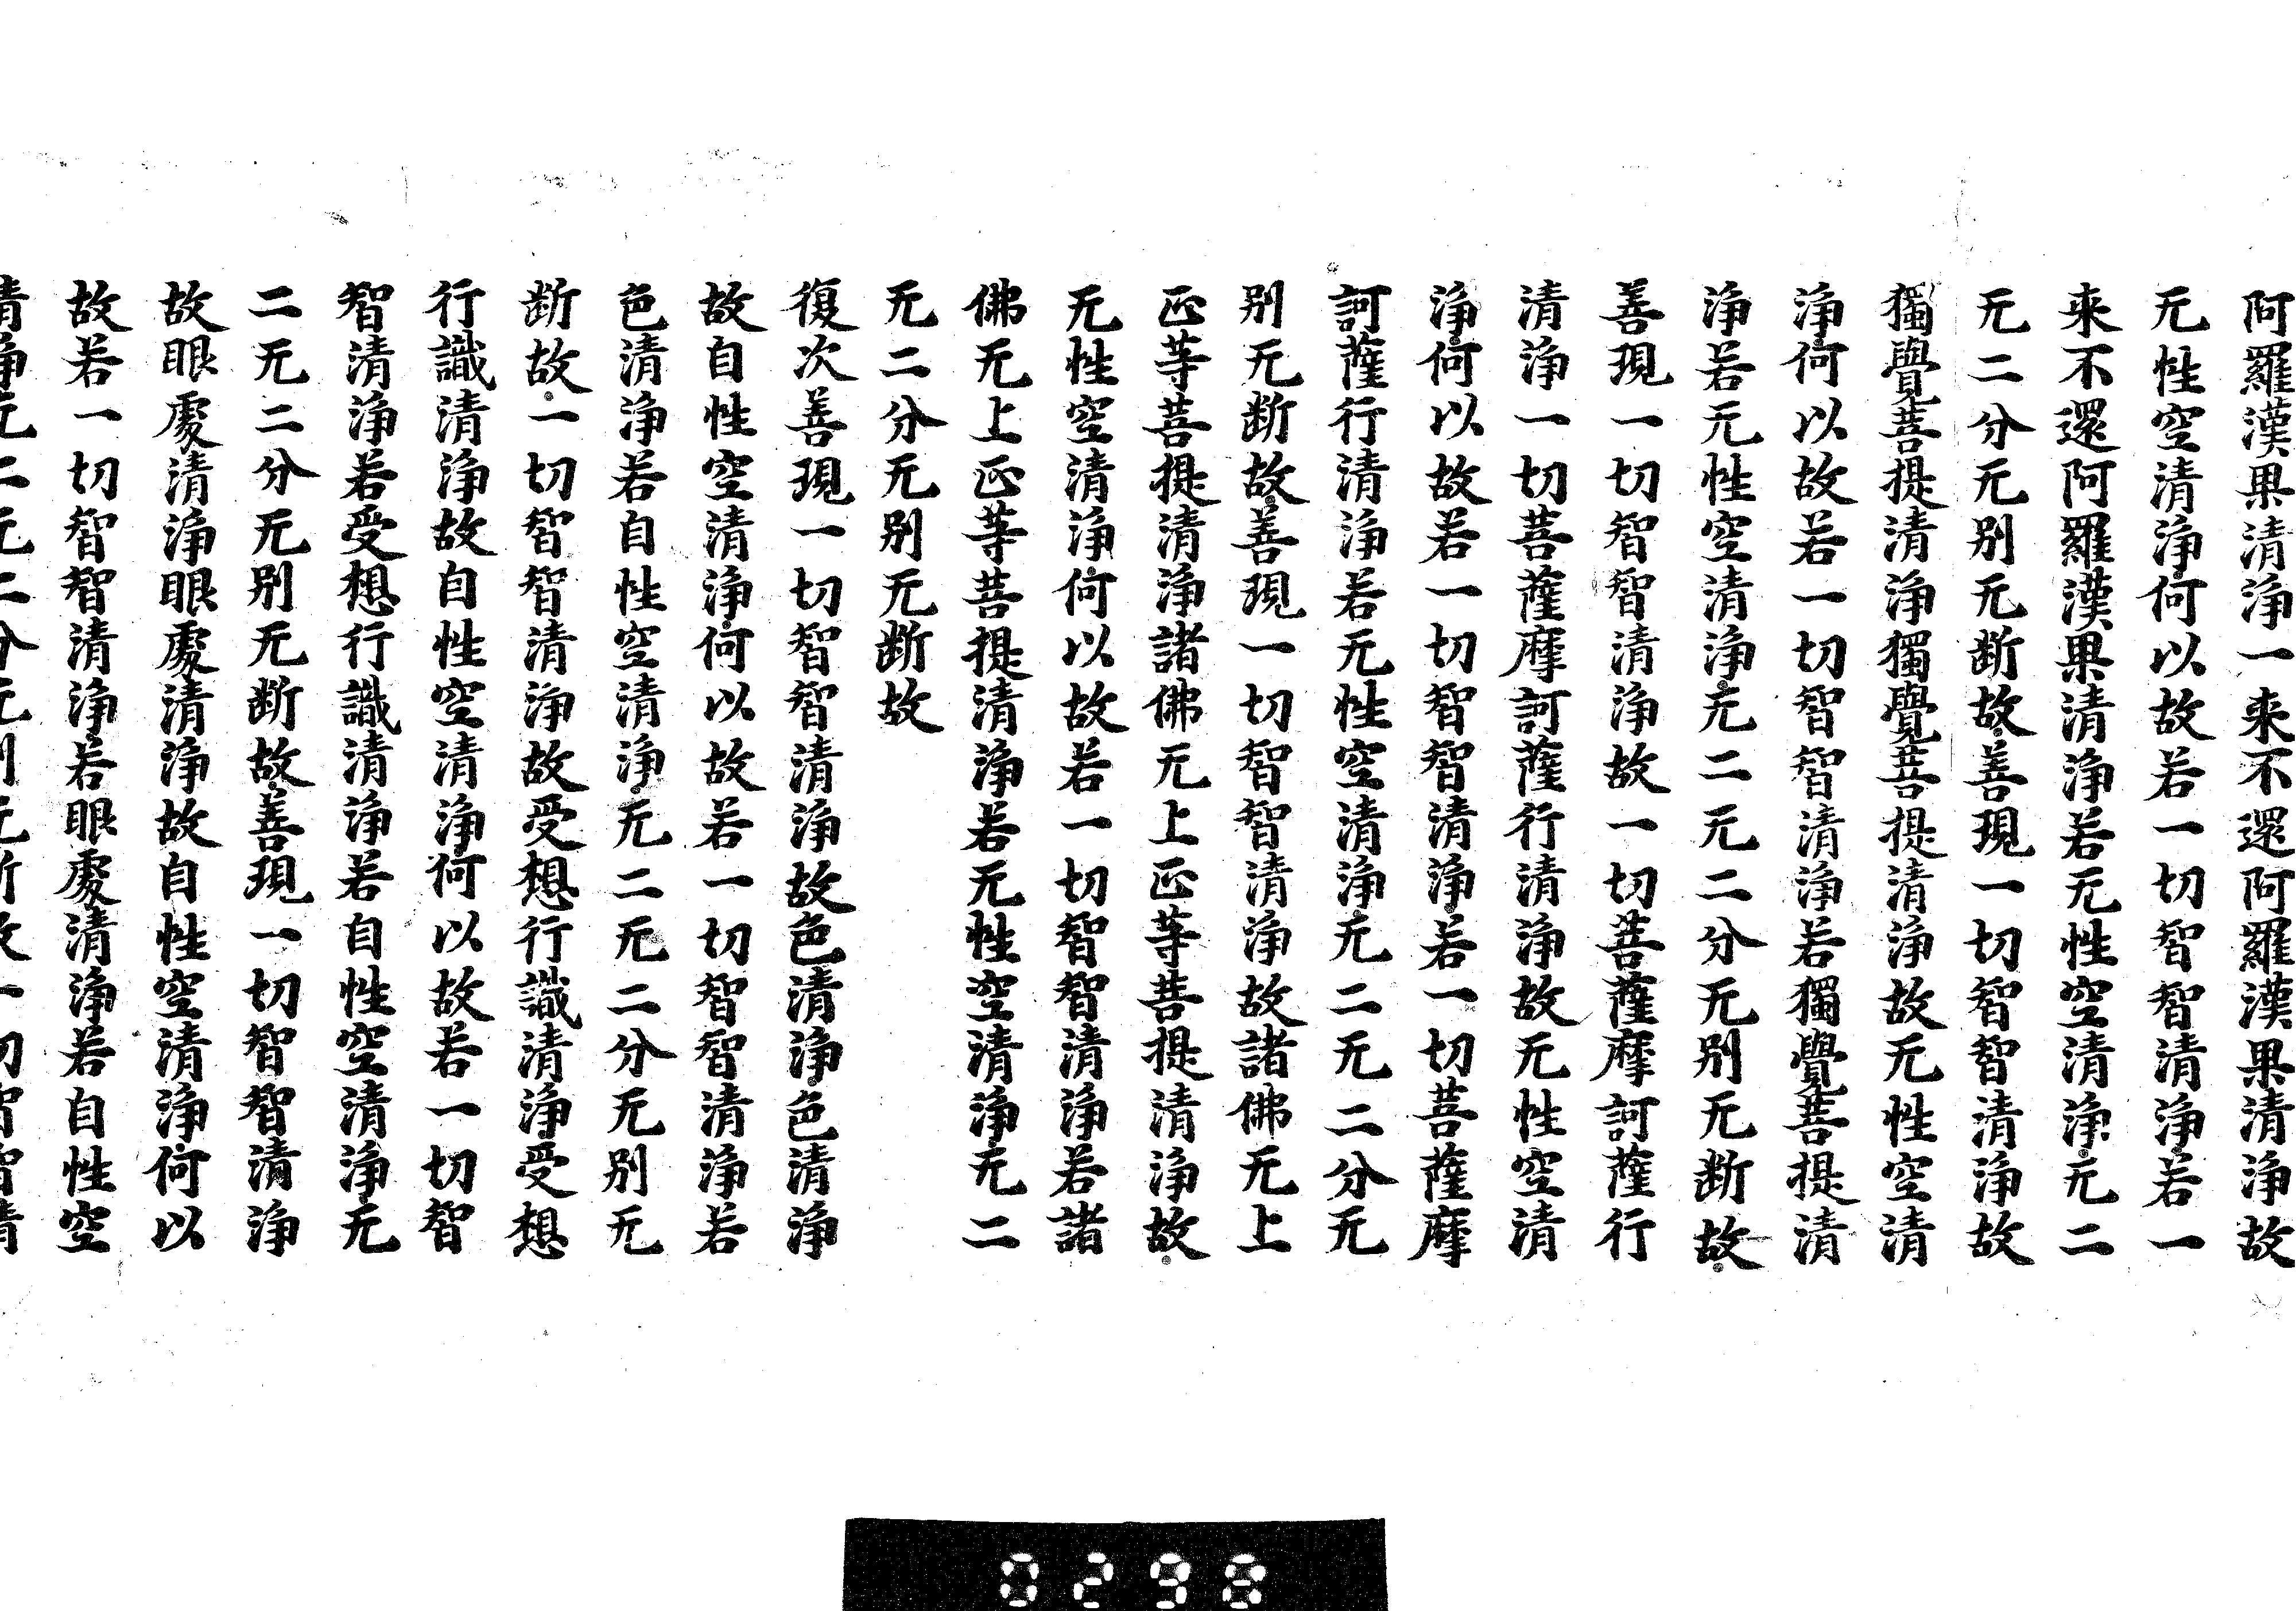 阿羅漢果清淨一来不還阿羅漢果清淨故
无性空清淨何以故若一切智智清淨若一
来不還阿羅漢果清淨若无性空清淨无二
无二分无別无断故善現一切智智清淨故
獨覺菩提清淨獨覺菩提清淨故无性空清
淨何以故若一切智智清淨若獨覺菩提清
淨若无性空清淨无二无二分无別无断故
善現一切智智清淨故一切菩薩摩訶薩行
清淨一切菩薩摩訶薩行清淨故无性空清
淨何以故若一切智智清淨若一切菩薩摩
訶薩行清淨若无性空清淨无二无二分无
別无断故善現一切智智清淨故諸佛无上
正等菩提清淨諸佛无上正等菩提清淨故
无性空清淨何以故若一切智智清淨若諸
佛无上正等菩提清淨若无性空清淨无二
无二分无別无断故
復次善現一切智智清淨故色清淨色清淨
故自性空清淨何以故若一切智智清淨若
色清淨若自性空清淨无二无二分无別无
断故一切智智清淨故受想行識清淨受想
行識清淨故自性空清淨何以故若一切智
智清淨若受想行識清淨若自性空清淨无
二无二分无別无断故善現一切智智清淨
故眼處清淨眼處清淨故自性空清淨何以
故若一切智智清淨若眼處清淨若自性空
清淨无二无二分无別无断故一切智智清
0298